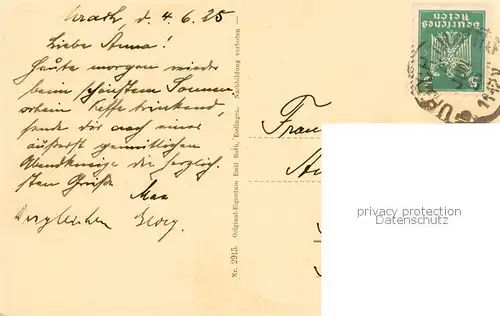 Urach, d. 4.6.25
Liebe Anna!
Heute morgen wieder
beim schönstem Sonnen
schein Kaffe trinkend,
sende dir nach einer
äußerst gemütlichen
die herzlich-
sten Grüße Max
Dergleichen Georg
Nr. 2915. Original-Eigentum Emil Roth, Nachbildung verboten
Deutsches
Reich
5
Frau
privacy protection
videodatenschutz